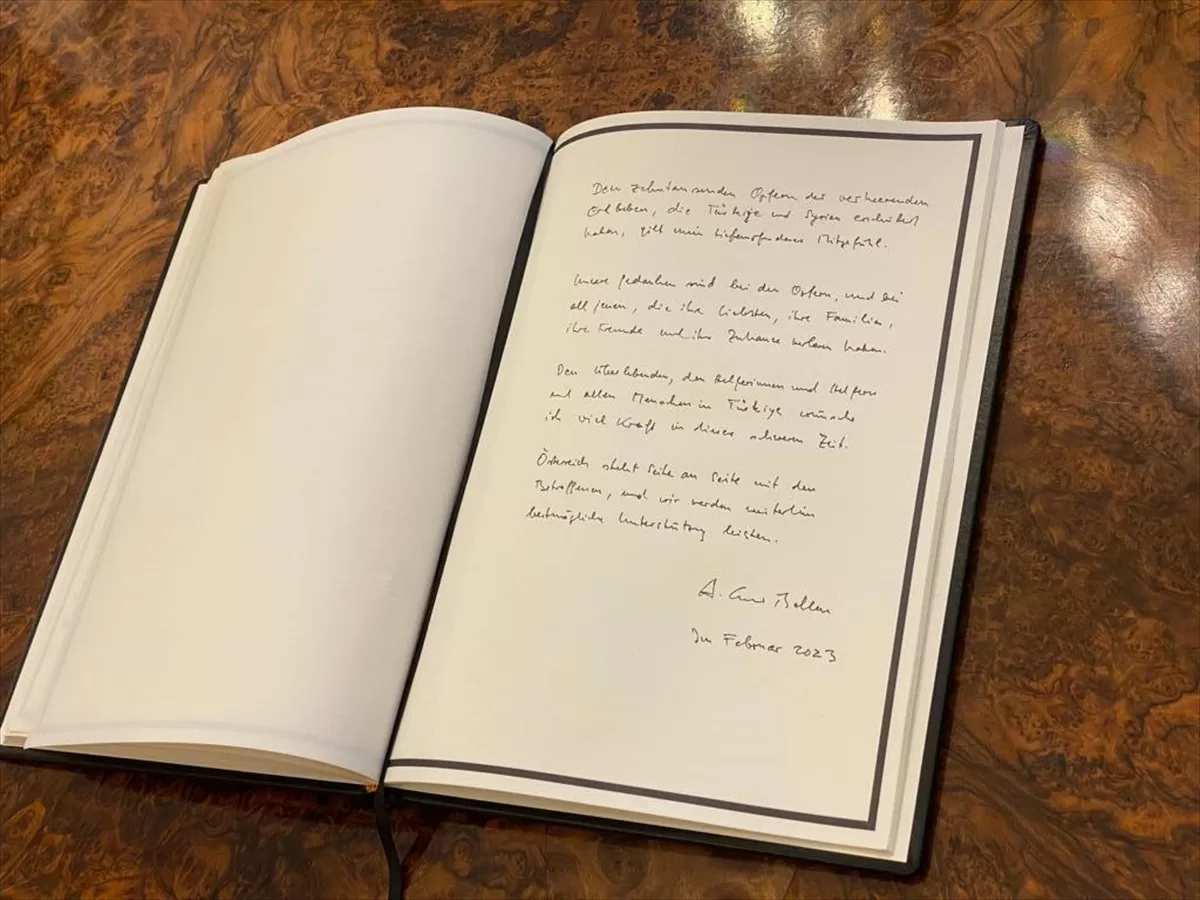 Den zehntausenden Opfern des verheerenden
Erdbeben, die Türkiye und Syrien erschüttert
haben, gilt mein tiefempfundenes Mitgefühl.
Unsere Gedanken sind bei den Opfern, und bei
all jenen, die ihre Liebsten, ihre Familien,
ihre Freunde und ihr Zuhause verloren haben.
Den Überlebenden, den Helferinnen und Helfern
und allen Menschen in Türkiye wünsche
ich viel Kraft in dieser schweren Zeit.
Österreich steht Seite an Seite mit den
Betroffenen, und wir werden weiterhin
bestmögliche Unterstützung leisten.
A. Van der Bellen
Im Februar 2023